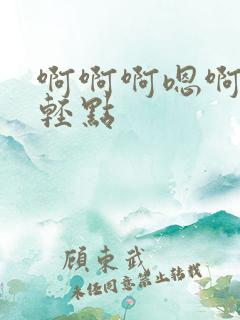 啊啊啊嗯啊
輕點
顧東武
未经同意禁止转载